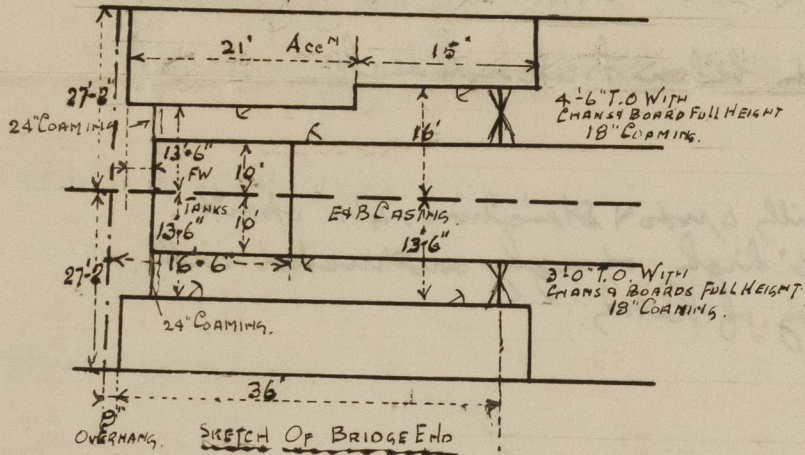 21' Accᴺ 15'
27'-2"
24" COAMING
4'-6" T.O WITH
CHANS & BOARD FULL HEIGHT
18" COAMING.
16'
13'-6"
FW
TANKS
10'
10'
13'-6"
E&B CASTING.
13'-6"
16'-6"
27'-2"
3'-0" T.O. WITH
CHANS & BOARDS FULL HEIGHT.
18" COAMING.
24" COAMING.
36'
OVERHANG.
SKETCH OF BRIDGE END